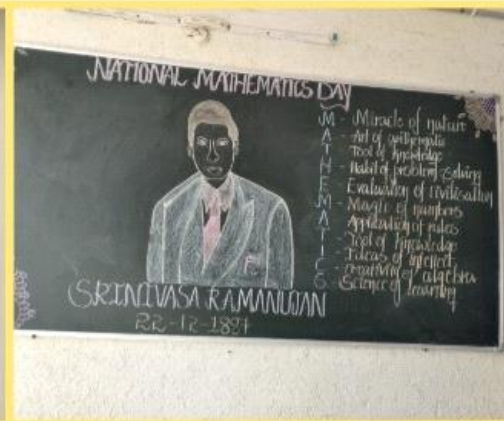 NATIONAL MATHEMATICS DAY
M - Miracle of nature
A - Art of arithmatic
T - Tool of knowledge
H - Habit of problem solving
E - Evaluation of civilisation
M - Magic of numbers
A - Application of rules
T - Tool of knowledge
I - Ideas of
C - of algebra
S - Science of learning
SRINIVASA RAMANUJAN
22-12-1887